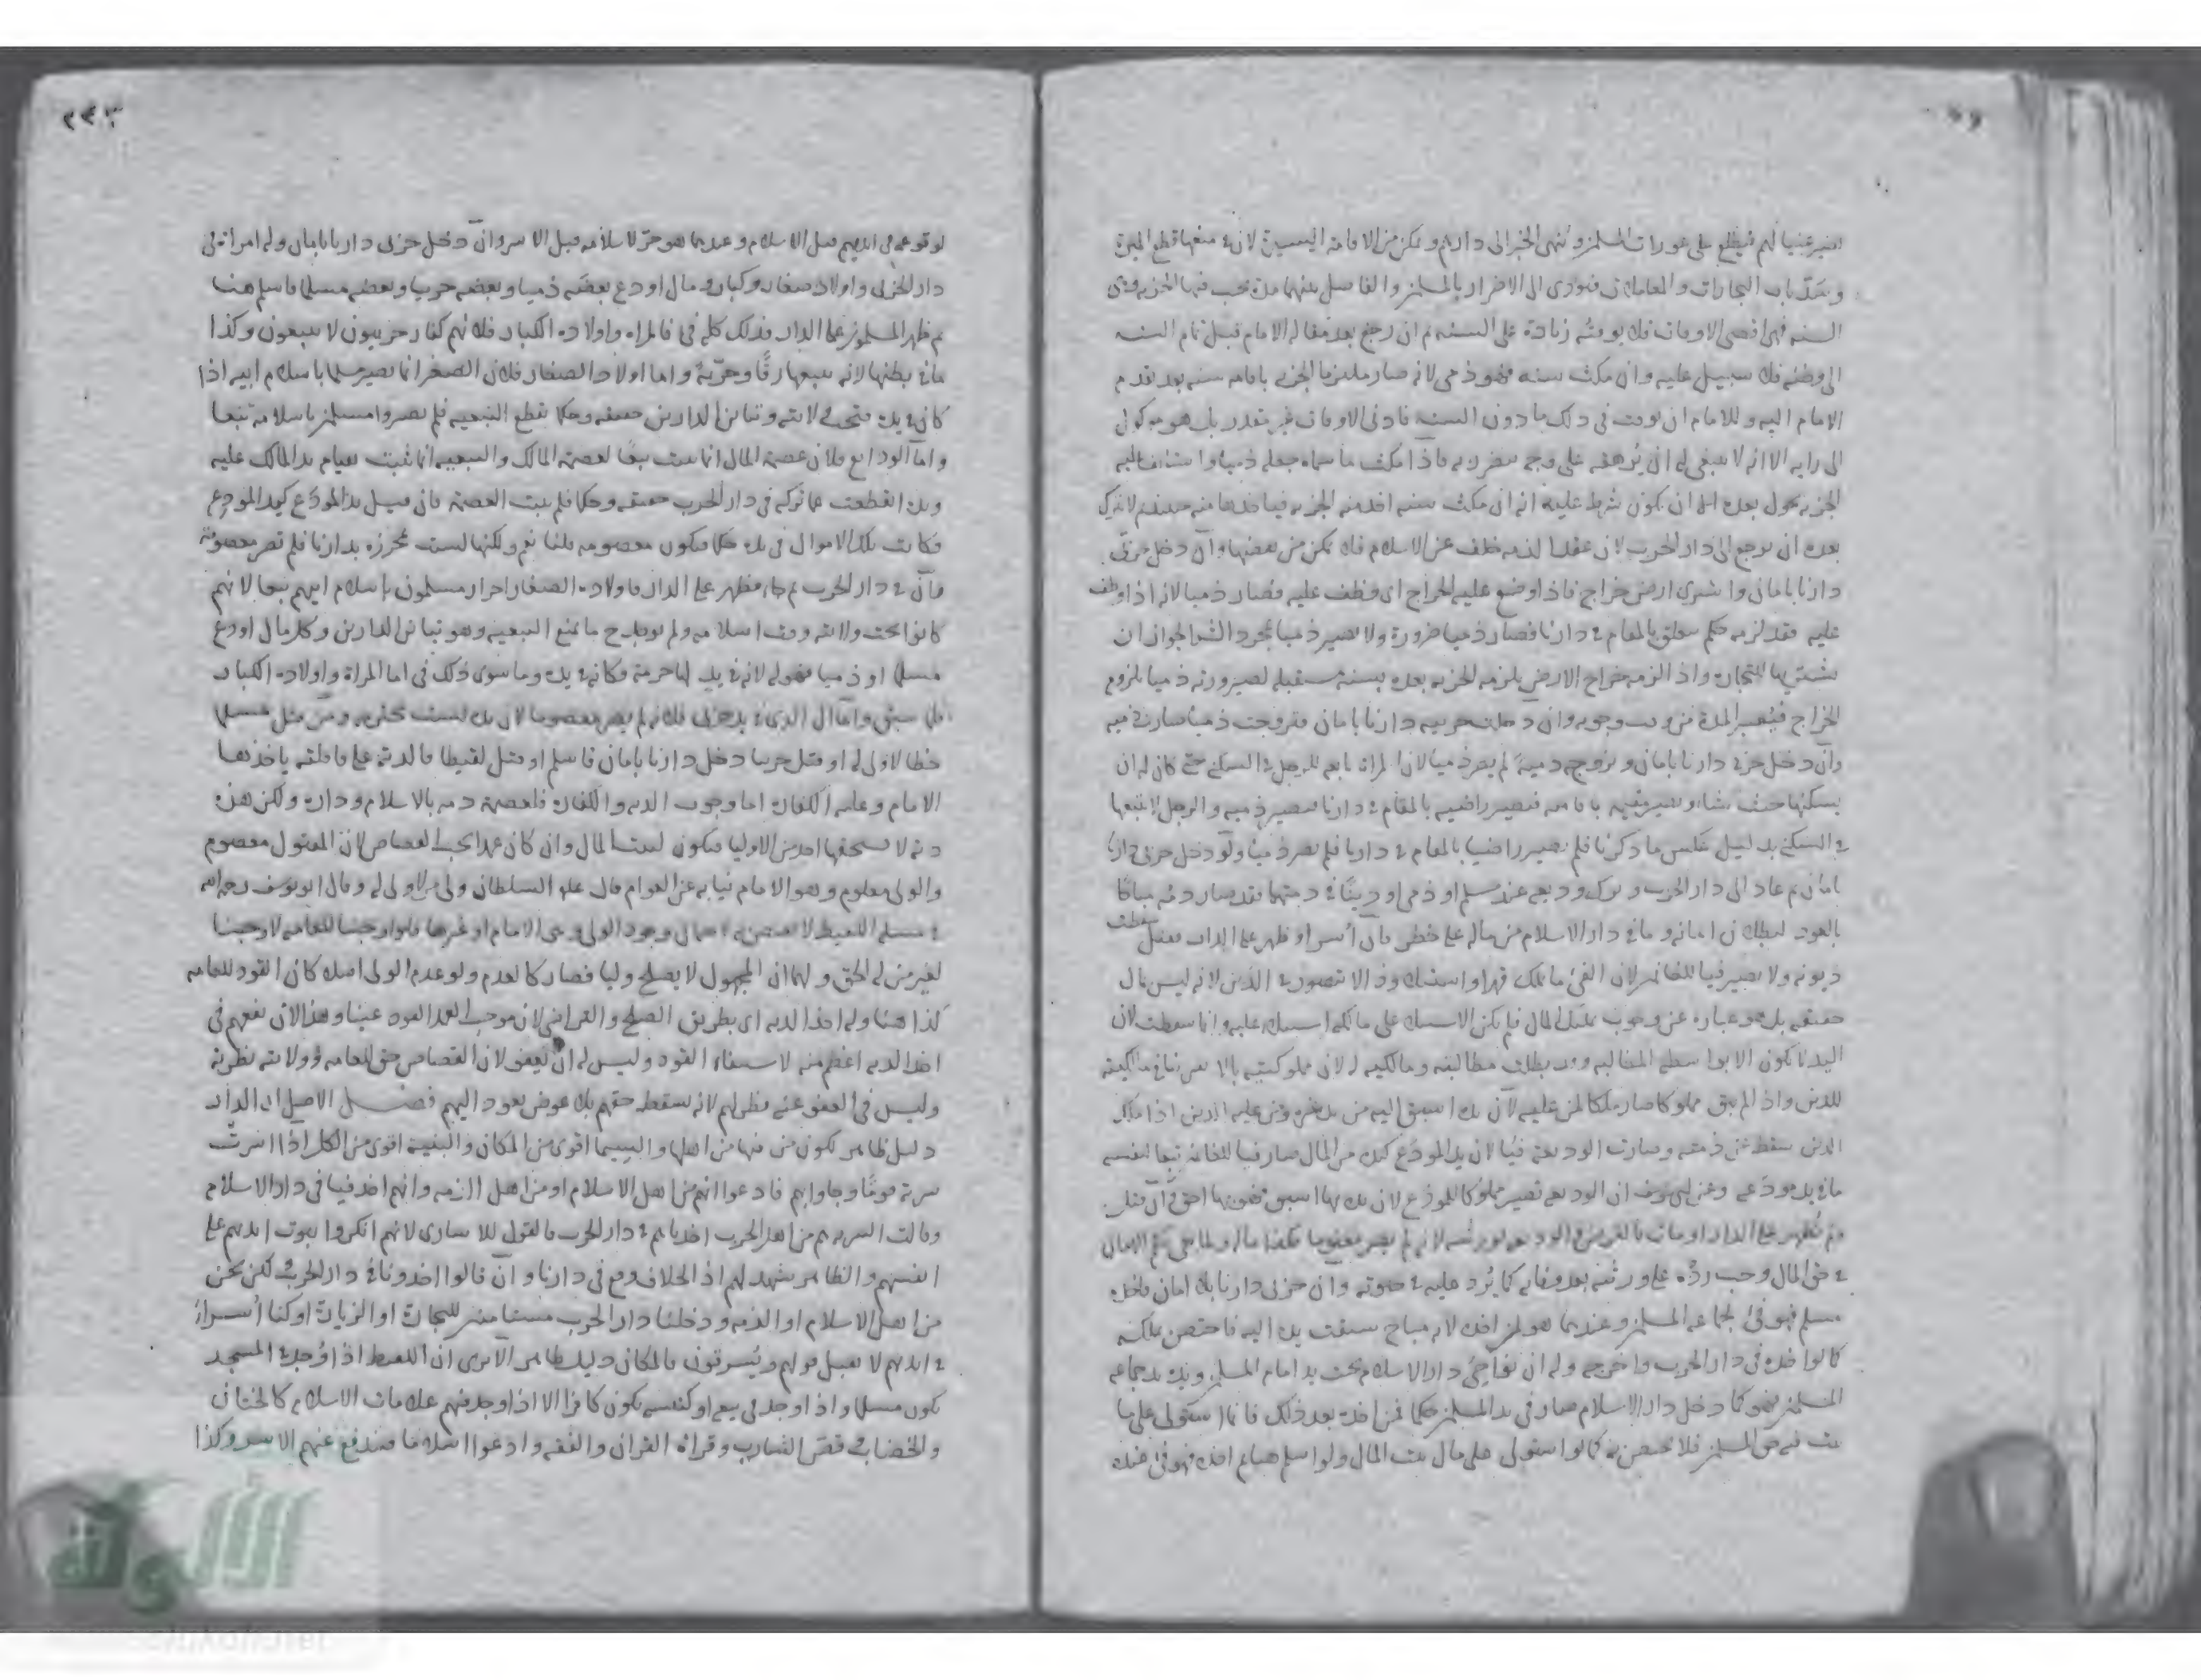 فيصير عينا لهم فيطلع على عورات المسلمين وينهى الخبر الى دارهم ويمكن من الاقامة اليسيرة لان في منعها قطع الميرة
وسد باب التجارات والمعاملات فيؤدى الى الاضرار بالمسلمين والفاصل بينهما مدة يجب فيها الجزية وهى
السنه فهى اقصى الاوقات فلا يوقت زيادة على السنه ثم ان رجع بعد مقالة الامام قبل تمام السنه
الى وطنه فلا سبيل عليه وان مكث سنه فهو ذمى لانه صار ملتزما الجزيه باقامه سنه بعد تقدم
الامام اليه وللامام ان يوقت فى ذلك ما دون السنه فادنى الاوقات غير مقدر بل هو موكول
الى رايه الا انه لا ينبغى له ان يرهقه على وجه يضر به فاذا مكث ما سماه جعله ذميا واستانف عليه
الجزيه بحول بعده الا ان يكون شرط عليه انه ان مكث سنه اخذ منه الجزيه فياخذها منه حينئذ ثم لا يترك
بعده ان يرجع الى دار الحرب لان عقد الذمه خلف عن الاسلام فلا يمكن من نقضها وان دخل حربى
دارنا بامان واشترى ارض خراج فاذا وضع عليه الخراج اى وظف عليه فصار ذميا لانه اذا وظف
عليه فقد لزمه حكم يتعلق بالمقام في دارنا فصار ذميا ضرورة ولا يصير ذميا بمجرد الشراء لجواز ان
يشتريها للتجارة واذا لزمه خراج الارض يلزمه الجزيه بعده بسنة مستقبله لصيرورته ذميا بلزوم
الخراج فيعتبر المدة من وقت وجوبه وان دخلت حربيه دارنا بامان فتزوجت ذميا صارت ذميه
وان دخل حربى دارنا بامان وتزوج ذميه لم يصر ذميا لان المراة تابعه للرجل في السكنى حتى كان له ان
يسكنها حيث شاء وتصير مقيمه باقامته فتصير راضيه بالمقام في دارنا فتصير ذميه والرجل لا يتبعها
في السكنى بدليل عكس ما ذكرنا فلم يصير راضيا بالمقام في دارنا فلم يصر ذميا ولو دخل حربى دارنا
بامان ثم عاد الى دار الحرب وترك وديعه عند مسلم او ذمى او دينا في ذمتهما فقد صار دمه مباحا
بالعود لبطلان امانه وما في دار الاسلام من ماله على خطر فان أسر او ظهر على الدار فقتل سقطت
ديونه ولا يصير فيا للغانمين لان الفئ ما يملك قهرا واستيلاء وذا لا يتصور في الدين لانه ليس بمال
حقيقه بل هو عباره عن وجوب تمليك المال فلم يكن الاستيلاء على مالكه استيلاء عليه وانما سقطت لان
اليد انما تكون الا بواسطه المطالبه وقد بطلت مطالبته ومالكيته
للدين واذا لم يبق مملوكا صار ملكا لمن عليه لان يده اسبق اليه من يد غيره ومن عليه الدين اذا ملك
الدين سقط عن ذمته وصارت الوديعة فيا لان يد المودع كيده من المال صار فيا للغانمه تبعا لنفسه
ما في يد مودعه وعن ابى يوسف ان الوديعه تصير مملوكا للمودع لان يده بها اسبق فهو بها احق وان قتل
ولم يظهر على الدار او مات فالقرض والوديعه لورثته لانه لم يصر مغنوما فكذا ماله ولما بقى حكم الامان
في حق المال وجب رده على ورثته بعد وفاته كما يرد عليه في حيوته وان حربى دارنا بلا امان فاخذه
مسلم فهو فئ لجماعه المسلمين وعندهما هو لمن اخذه لانه مباح سبقت يده اليه فاختص بملكه
كما لو اخذه فى دار الحرب واخرجه وله ان نواحى دار الاسلام تحت يد امام المسلمين ويده يد جماعه
المسلمين فهو كما دخل دار الاسلام صار فى يد المسلمين حكما فمن اخذه بعد ذلك فانما استولى على ما
ثبت فيه حق المسلمين فلا يختص به كما لو استولى على مال بيت المال ولو اسلم هنا ثم اخذه فهو فئ عنده
٢٤٣
لوقوعه فى ايديهم قبل الاسلام وعندهما هو حر لاسلامه قبل الاسر وان دخل حربى دارنا بامان وله امراة فى
دار الحرب واولاد صغار وكبار ومال اودع بعضه ذميا وبعضه حربيا وبعضه مسلما فاسلم هنا
ثم ظهر المسلمون على الدار فذلك كله فئ فالمراه واولاده الكبار فلانهم كفار حربيون لا يتبعون وكذا
ما في بطنها لانه يتبعها رقا وحرية واما اولاد الصغار فلان الصغير انما يصير مسلما باسلام ابيه اذا
كان في يده تحت ولايته وتباين الدارين حقيقه وحكما يقطع التبعيه فلم يصيروا مسلمين باسلامه تبعا
واما الودايع فلان عصمة المال انما يثبت تبعا لعصمة المالك والتبعيه انما تثبت بقيام يد المالك عليه
ويده انقطعت عما تركه فى دار الحرب حقيقه وحكما فلم يثبت العصمة فان قيل يد المودع كيد المودع
فكانت تلك الاموال فى يده حكما فيكون معصومه قلنا نعم ولكنها ليست محرزه بدارنا فلم تصر معصومة
وان في دار الحرب ثم جاء فظهر على الدار فاولاده الصغار احرار مسلمون باسلام ابيهم تبعا لانهم
كانوا تحت ولايته وقت اسلامه ولم يوجد ح ما يمنع التبعيه وهو تباين الدارين وكل مال اودع
مسلما او ذميا فهو له لانه في يد لها حرمة فكانه في يده وما سوى ذلك فئ اما المراة واولاده الكبار
فلما سبق واما المال الذى في يد حربى فلانه لم يصر معصوما لان يده ليست بمحترمه ومن قتل مسلما
خطا لا ولى له او قتل حربيا دخل دارنا بامان فاسلم او قتل لقيطا فالدية على عاقلته ياخذها
الامام وعليه الكفارة اما وجوب الديه والكفارة فلعصمة دمه بالاسلام وداره ولكن هذه
دية لا يستحقها احد من الاوليا فيكون لبيت المال وان كان عمدا يجب القصاص لان المقتول معصوم
والولى معلوم وهو الامام نيابة عن العوام قال عليه السلطان ولى من لا ولى له وقال ابو يوسف رحمه الله
في مسلم اللقيط لا يقتص به احتمال وجود الولى وهى الام او غيرها فلو اوجبنا للعامه لاوجبنا
لغير من له الحق ولهما ان المجهول لا يصلح وليا فصار كالعدم ولو عدم الولى اصلا كان القود للعامه
كذا هنا وله اخذ الديه اى بطريق الصلح والتراضى لان موجب العمد القود عينا وهذا لان نفعهم فى
اخذ الديه اعظم منه لاستيفاء القود وليس له ان يعفو لان القصاص حق للعامه وولايته نظرية
وليس فى العفو عنه نظر لهم لانه يسقط حقهم بلا عوض يعود اليهم فصل الاصل ان الدار
دليل ظاهر لكون من فيها من اهلها والسيما اقوى من المكان والبينة اقوى من الكل اذا اسرت
سرية قوما وجاوابهم فادعوا انهم من اهل الاسلام او من اهل الذمه وانهم اخذ فيها فى دار الاسلام
وقالت السريه هم من اهل الحرب اخذناهم في دار الحرب فالقول للاسارى لانهم انكروا ثبوت ايديهم على
انفسهم والظاهر يشهد لهم اذ الخلاف وقع فى دارنا وان قالوا اخذونا في دار الحرب لكن نحن
من اهل الاسلام او الذمه ودخلنا دار الحرب مستامنين للتجارة او الزيارة او كنا أسراء
في ايديهم لا يقبل قولهم ويسترقون فالمكان دليل ظاهر الا يرى ان اللقيط اذا وجد في المسجد
يكون مسلما واذا وجد فى بيعه او كنيسه يكون كافرا الا اذا وجد فيهم علامات الاسلام كالختان
والخضاب وقص الشارب وقراءة القران والفقه وادعوا اسلاما فيندفع عنهم الاسر وكذا
الألوكة